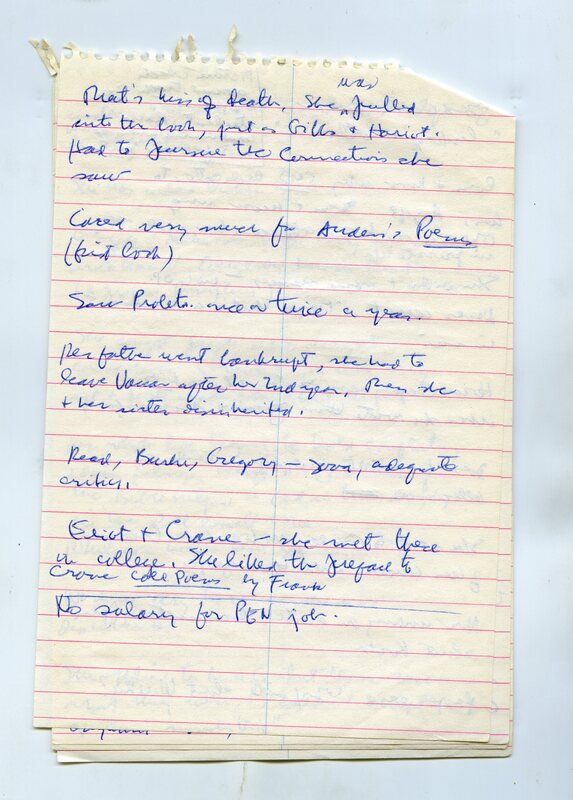 was
That's kiss of death, she pulled
into the book, just as Gibbs + Hariot.
Had to pursue the connections she
saw
Cared very much for Auden's Poems
(first book)
Saw Proleta. once or twice a year.
Her father went bankrupt, she had to
leave Vassar after her 2nd year. Then she
+ her sister disinherited.
Read, Burke, Gregory – good, adequate
critics.
Eliot + Crane – she met these
in college. She liked the preface to
Crane Coll. Poems by Frank
No salary for PEN job.